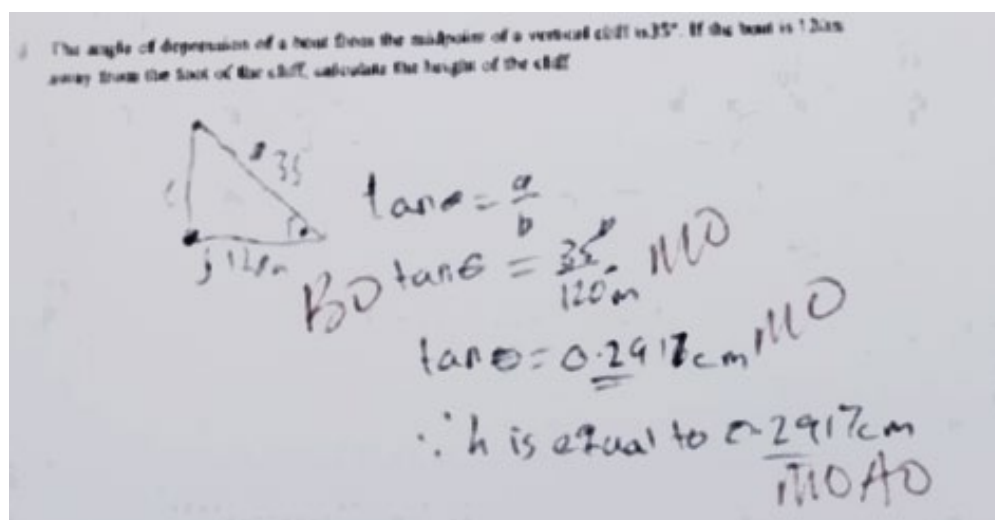 The angle of depression of a boat from the midpoint of a vertical cliff is 35°. If the boat is 120m
away from the foot of the cliff, calculate the height of the cliff
35
120m
tanθ = a/b
B0 tanθ = 35°/120m M0
tanθ = 0.2917cm M0
∴ h is equal to 0.2917cm
M0 A0